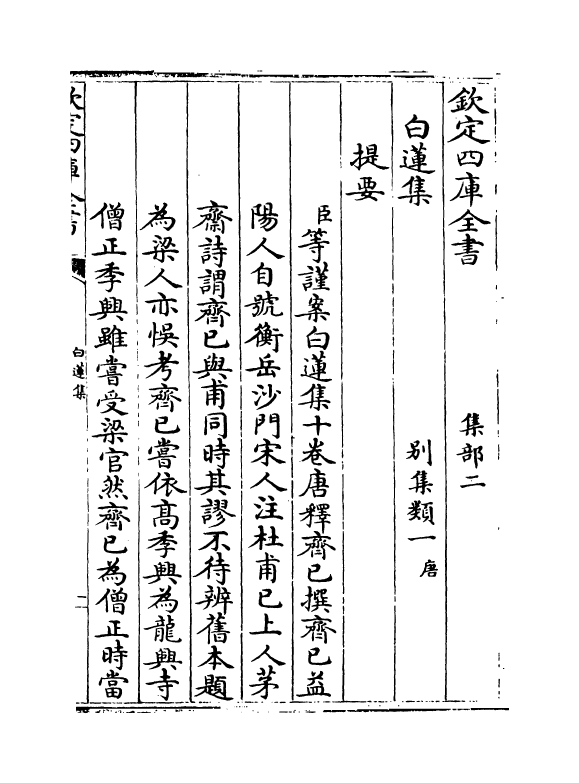 欽定四庫全書
集部二
白蓮集
別集類一 唐
提要
臣等謹案白蓮集十卷唐釋齊已撰齊已益
陽人自號衡岳沙門宋人注杜甫已上人茅
齋詩謂齊已與甫同時其謬不待辨舊本題
為梁人亦悞考齊已嘗依高季興為龍興寺
僧正季興雖嘗受梁官然齊已為僧正時當
欽定四庫全書
白蓮集
一